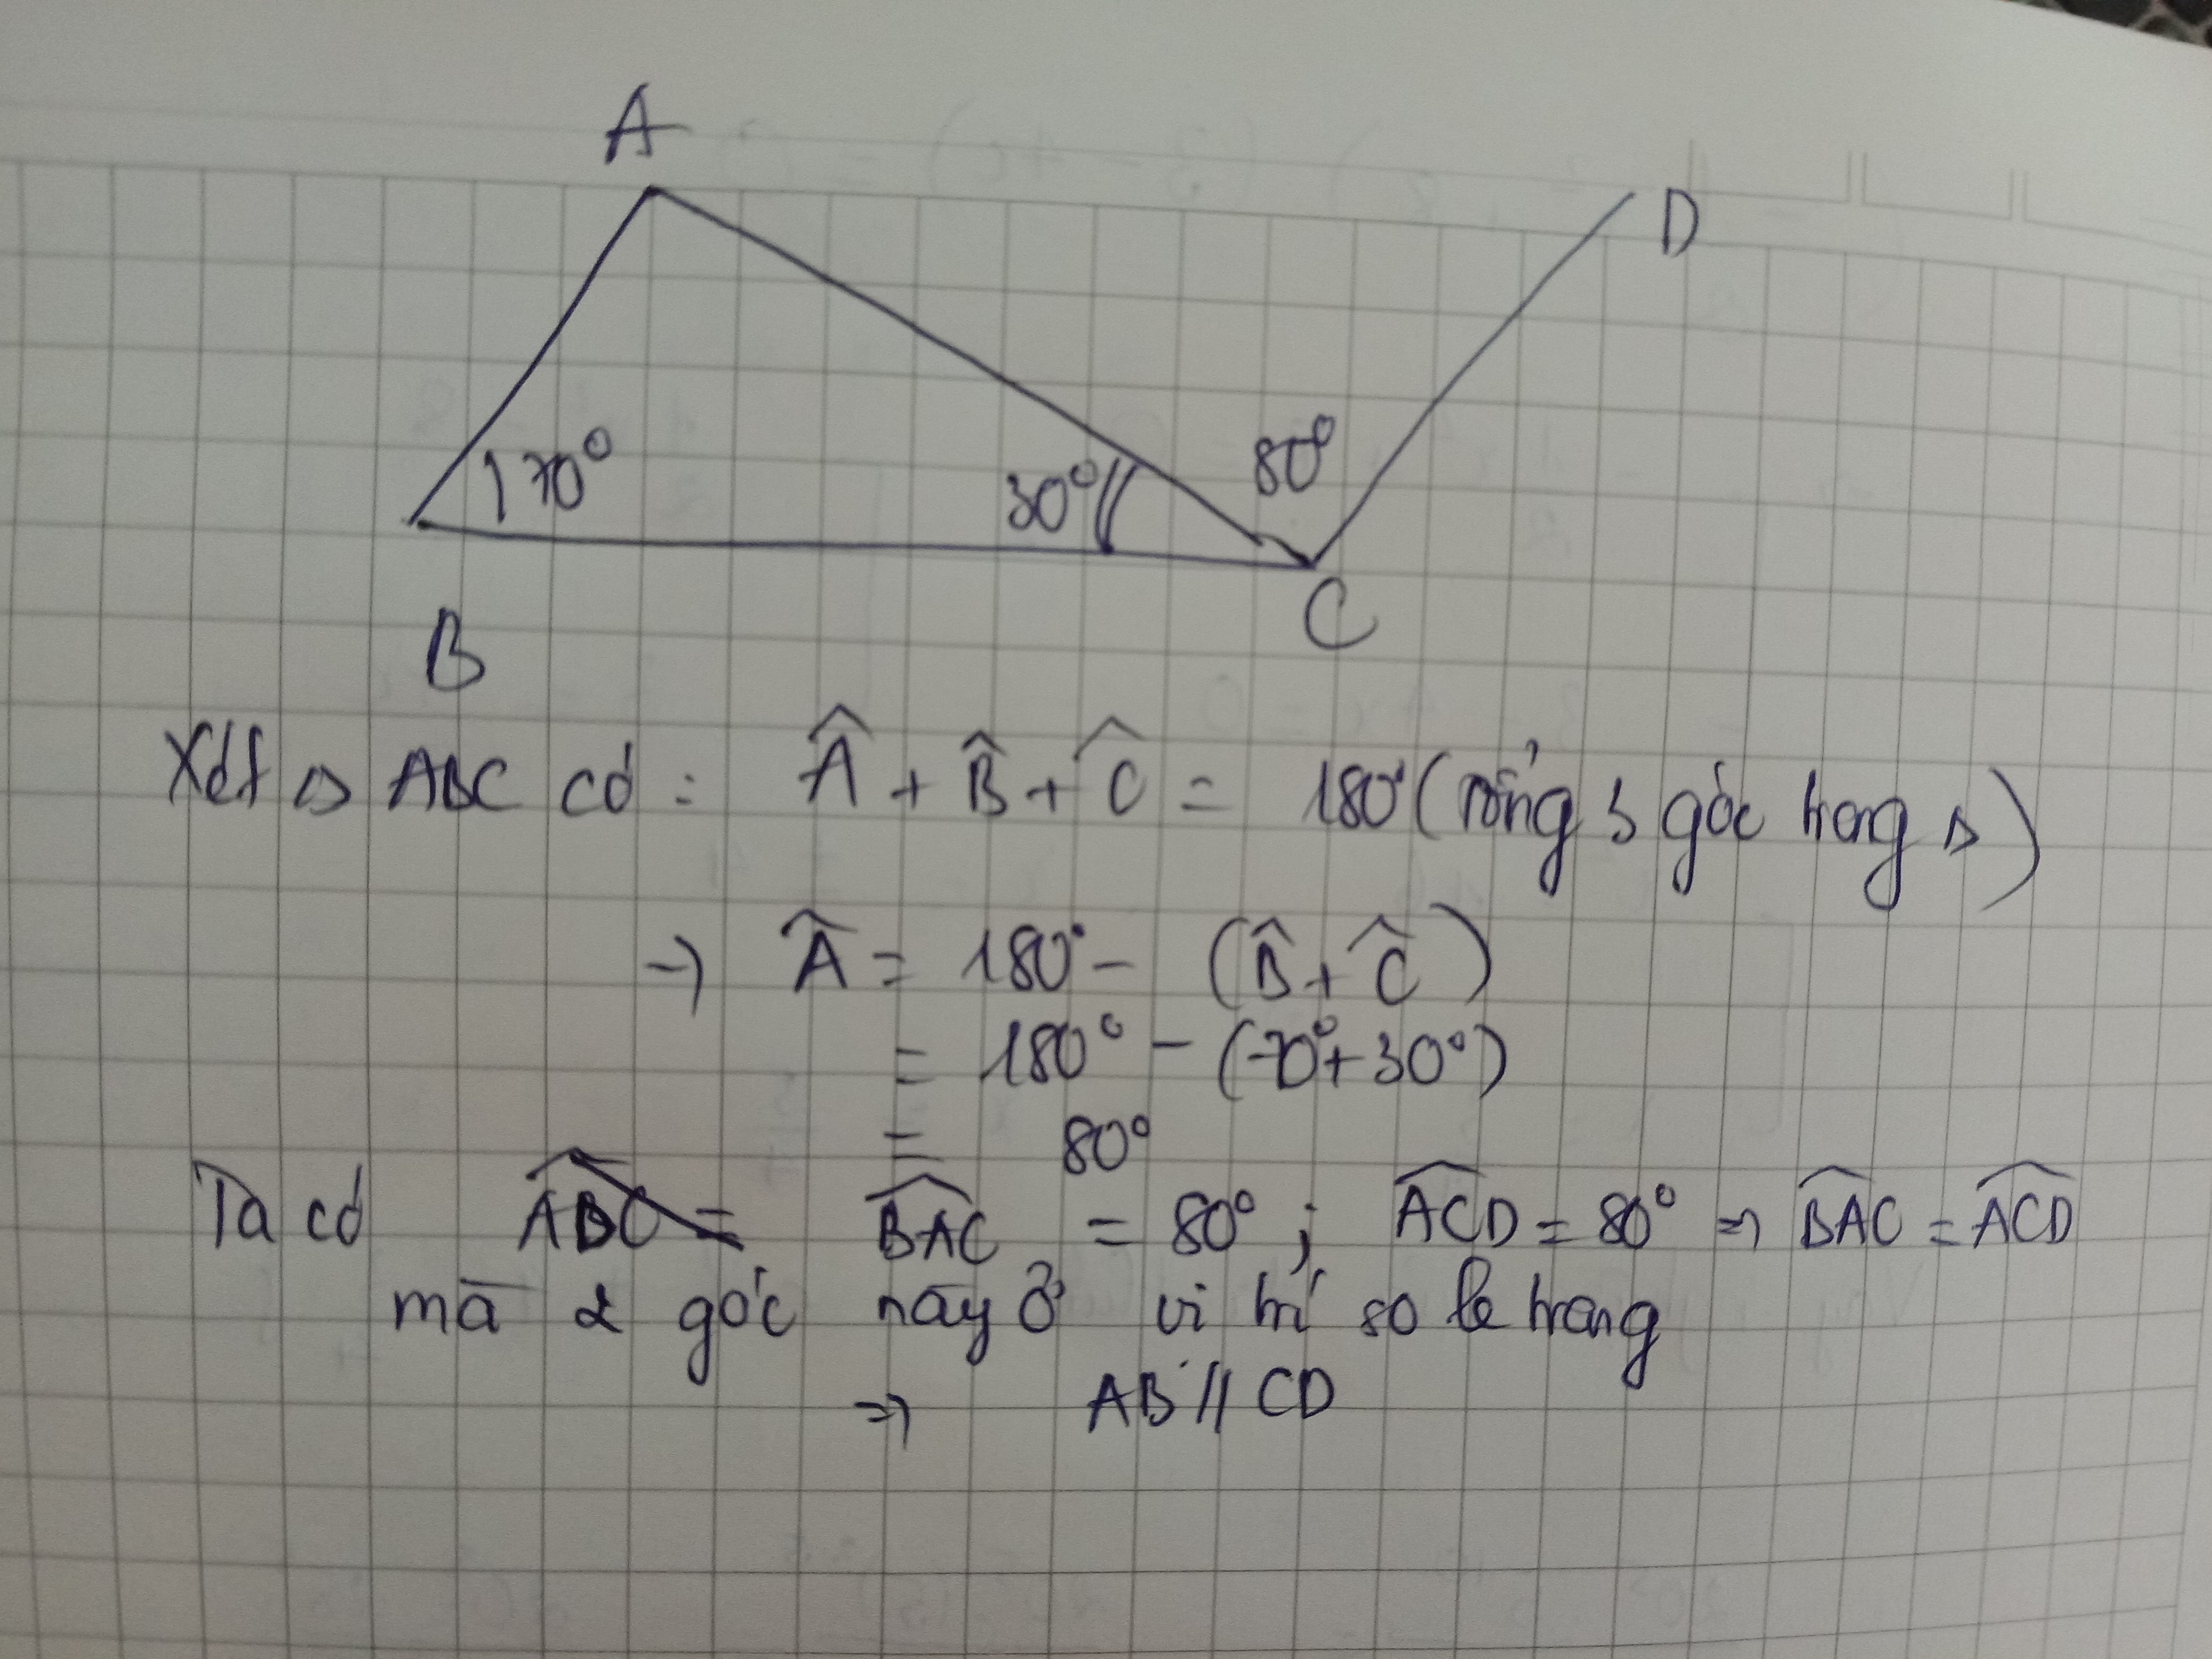 A
D
70°
30°
80°
B
C
Xét △ ABC có : Â + B̂ + Ĉ = 180° (tổng 3 góc trong △)
→ Â = 180° - (B̂ + Ĉ)
= 180° - (70° + 30°)
= 80°
Ta có BAC = 80° ; ACD = 80° ⇒ BAC = ACD
mà 2 góc này ở vị trí so le trong
⇒ AB // CD